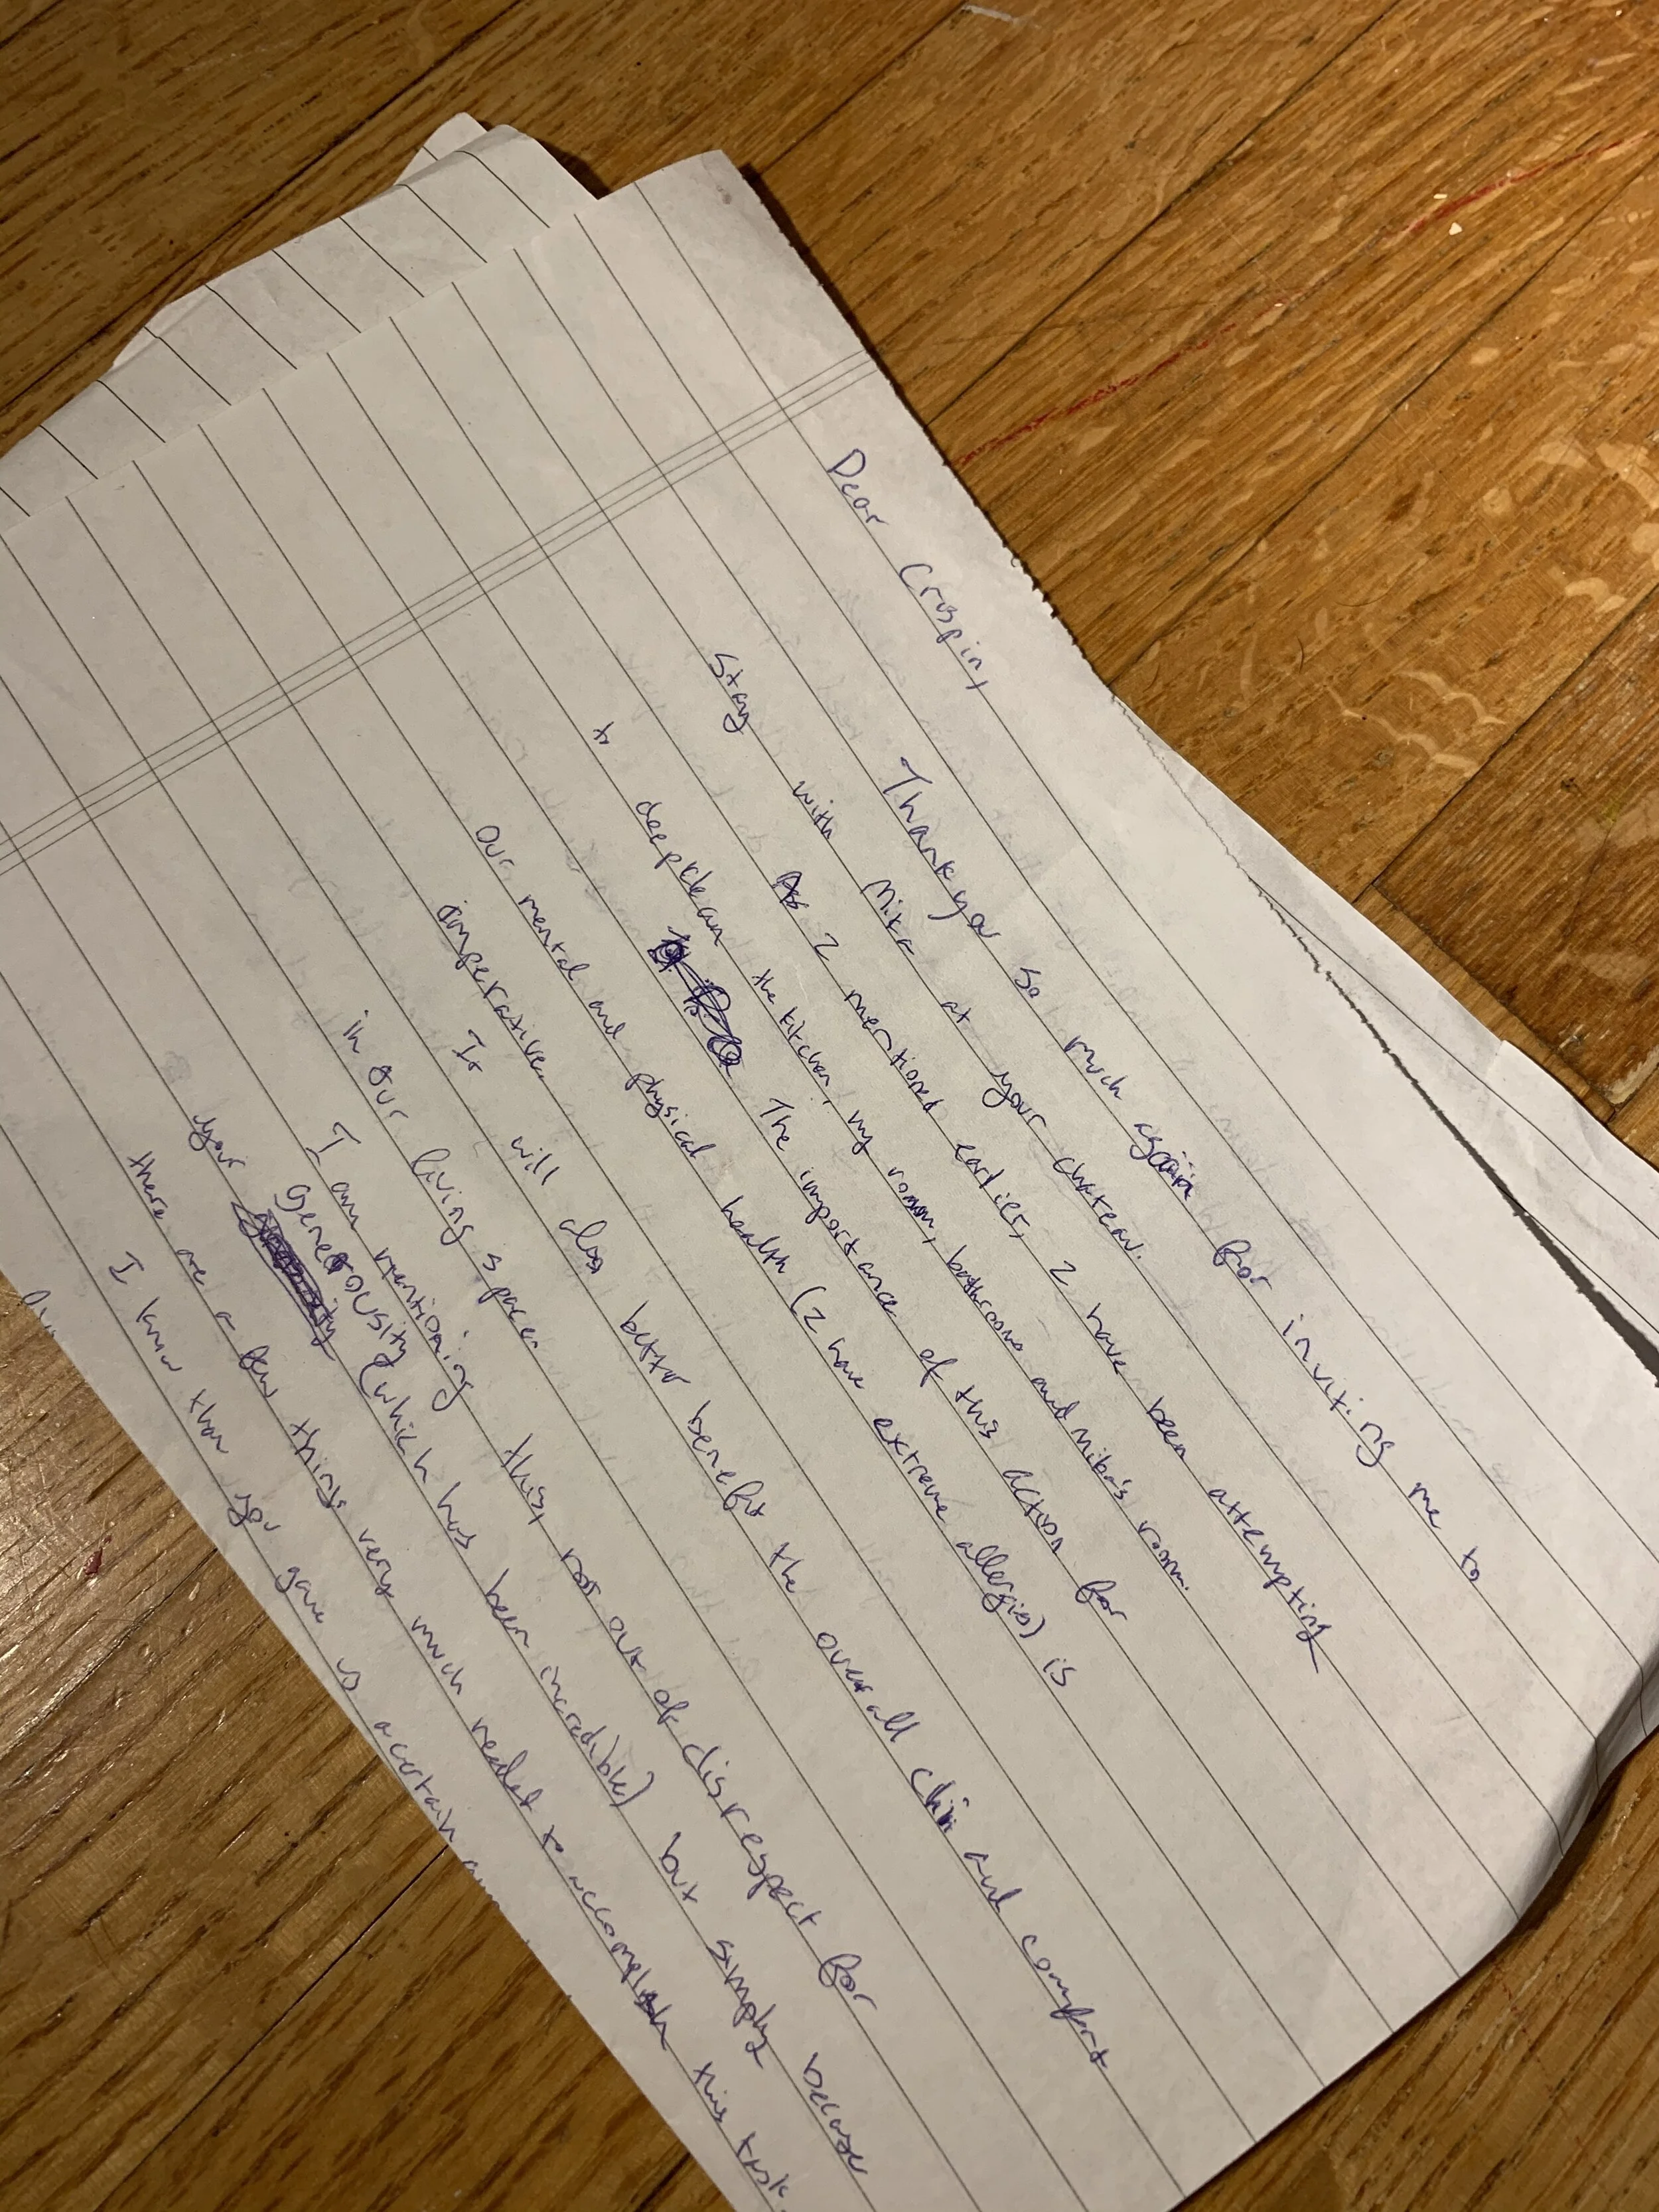 Dear Crispin,
Thank you so much again for inviting me to
stay with Mika at your chateau.
As I mentioned earlier, I have been attempting
to deep clean the kitchen, my room, bathroom and Mika's room.
The importance of this action for
our mental and physical health (I have extreme allergies) is
imperative.
It will also better benefit the overall and comfort
in our living space.
I am mentioning this, not out of disrespect for
your generousity (which has been incredible) but simply because
there are a few things very much needed to accomplish this task.
I know that you gave us a certain